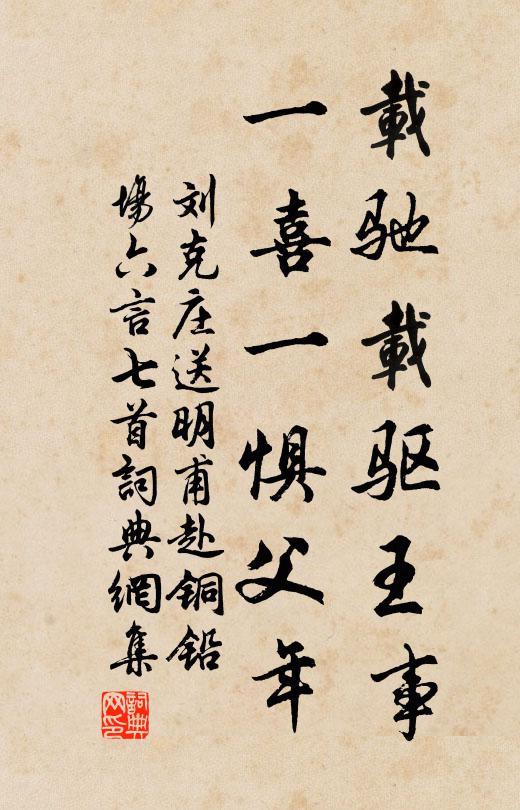 載驰載驱王事
一喜一惧父年
刘克庄送明甫赴铜铅
場六言七首詞典網集
詞典
网印